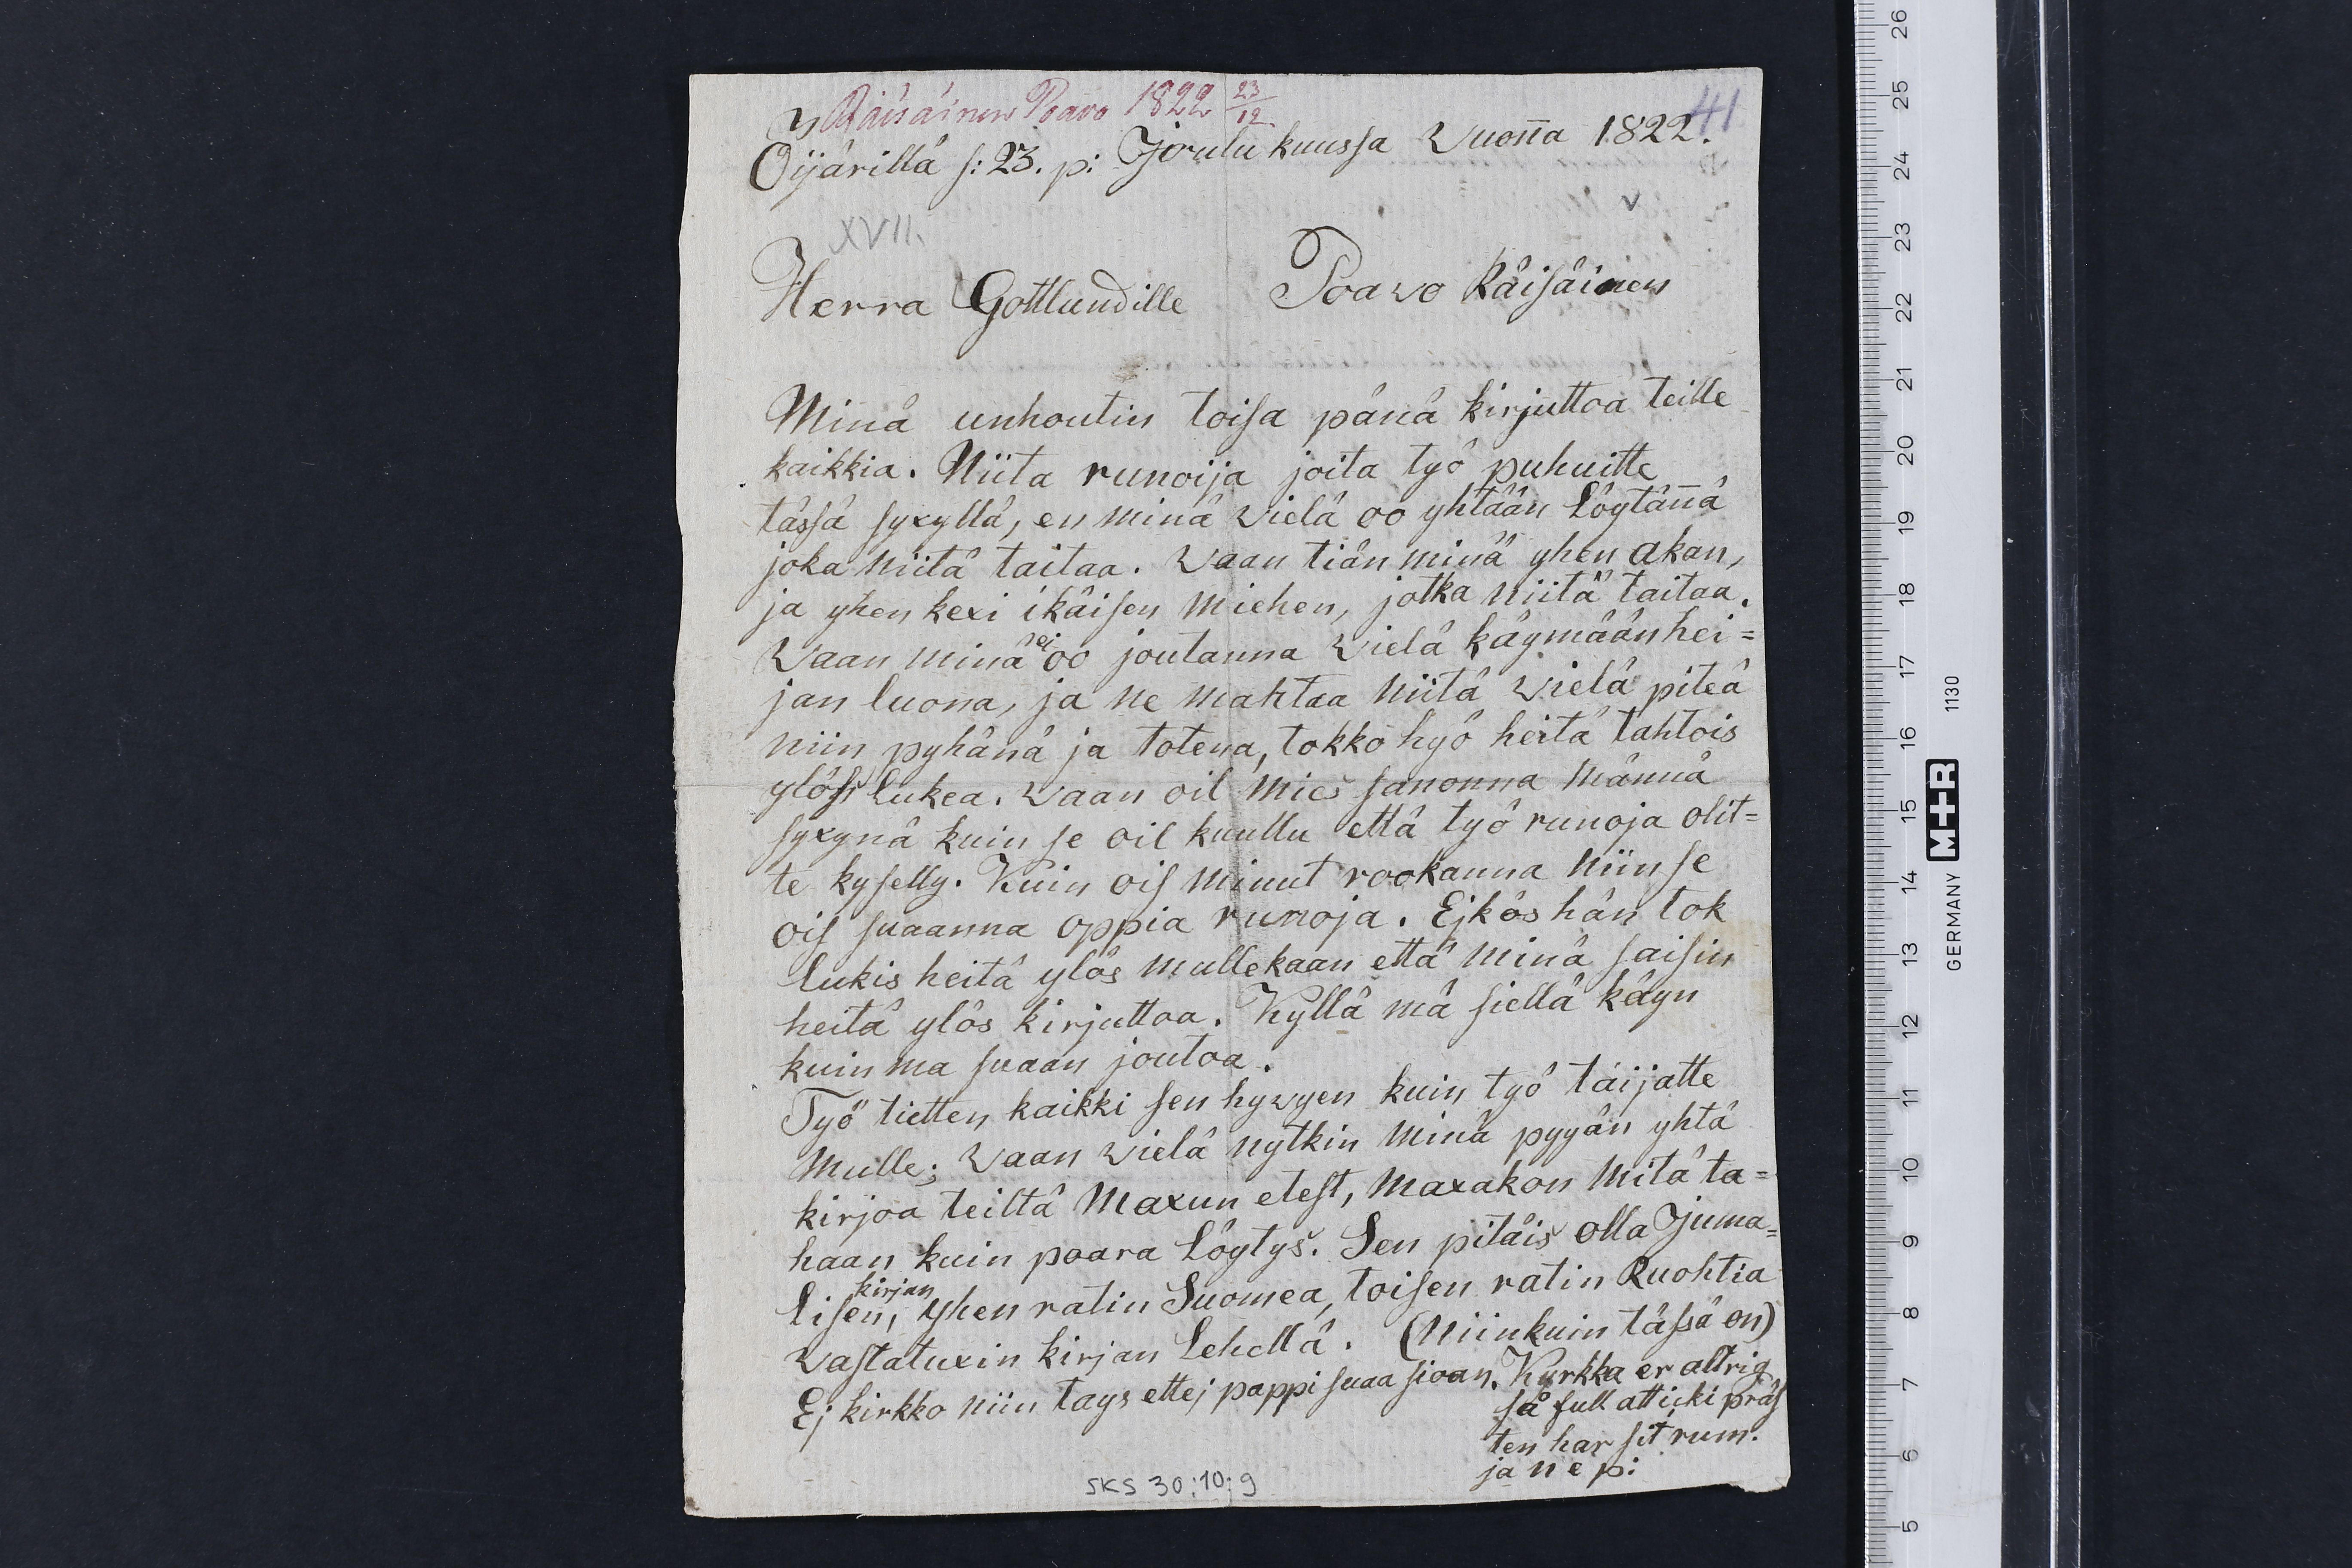 Räisäinen Poavo 1822 23/12
41
Oijärillä s: 23. p: Joulu kuussa Vuon̄a 1822.
XVII.
Herra Gottlundille Poavo Räisäinen
Minä unhoutin toisa pänä kirjuttoa teille
kaikkia. Niita runoija joita työ puhuitte
tässä syxyllä, en minä vielä oo yhtään löytän̄ä
joka niitä taitaa. Vaan tiän minä yhen akan,
ja yhen kexi ikäisen miehen, jotka niitä taitaa.
Vaan minä ei oo joutanna vielä käymään hei=
jan luona, ja ne mahtaa niitä vielä piteä
niin pyhänä ja totena, tokko hyö heitä tahtois
ylöss lukea. Vaan oil mies sanonna männä
syxynä kuin se oil kuullu että työ runoja olit=
te kyselly. Kuin ois minut rookanna niin se
ois suaanna oppia runoja. Ejkös hän tok
lukis heitä ylös mullekaan että minä saisin
heitä ylös kirjuttoa. Kyllä mä siellä käyn
kuin ma suaan joutoa.
Työ tietten kaikki sen hyvyen kuin työ täijatte
Mulle; Vaan vielä nytkin minä pyyän yhtä
kirjoa teiltä Maxun etest, maxakon mitä ta=
haan kuin poara löytys. Sen pitäis olla Juma=
lisen, kirjan yhen ratin Suomea, toisen ratin Ruohtia
vastatuxin kirjan Lehellä. (Niinkuin tässä on)
Ej kirkko niin tays ettej pappi suaa sioan. Kyrkka er altrig
så full att icki präs
ten har sit rum.
ja n e p:
SKS 30:10:9
26
25
24
23
22
21
20
19
18
17
16
15
14
13
12
11
10
9
8
7
6
5
GERMANY M+R 1130